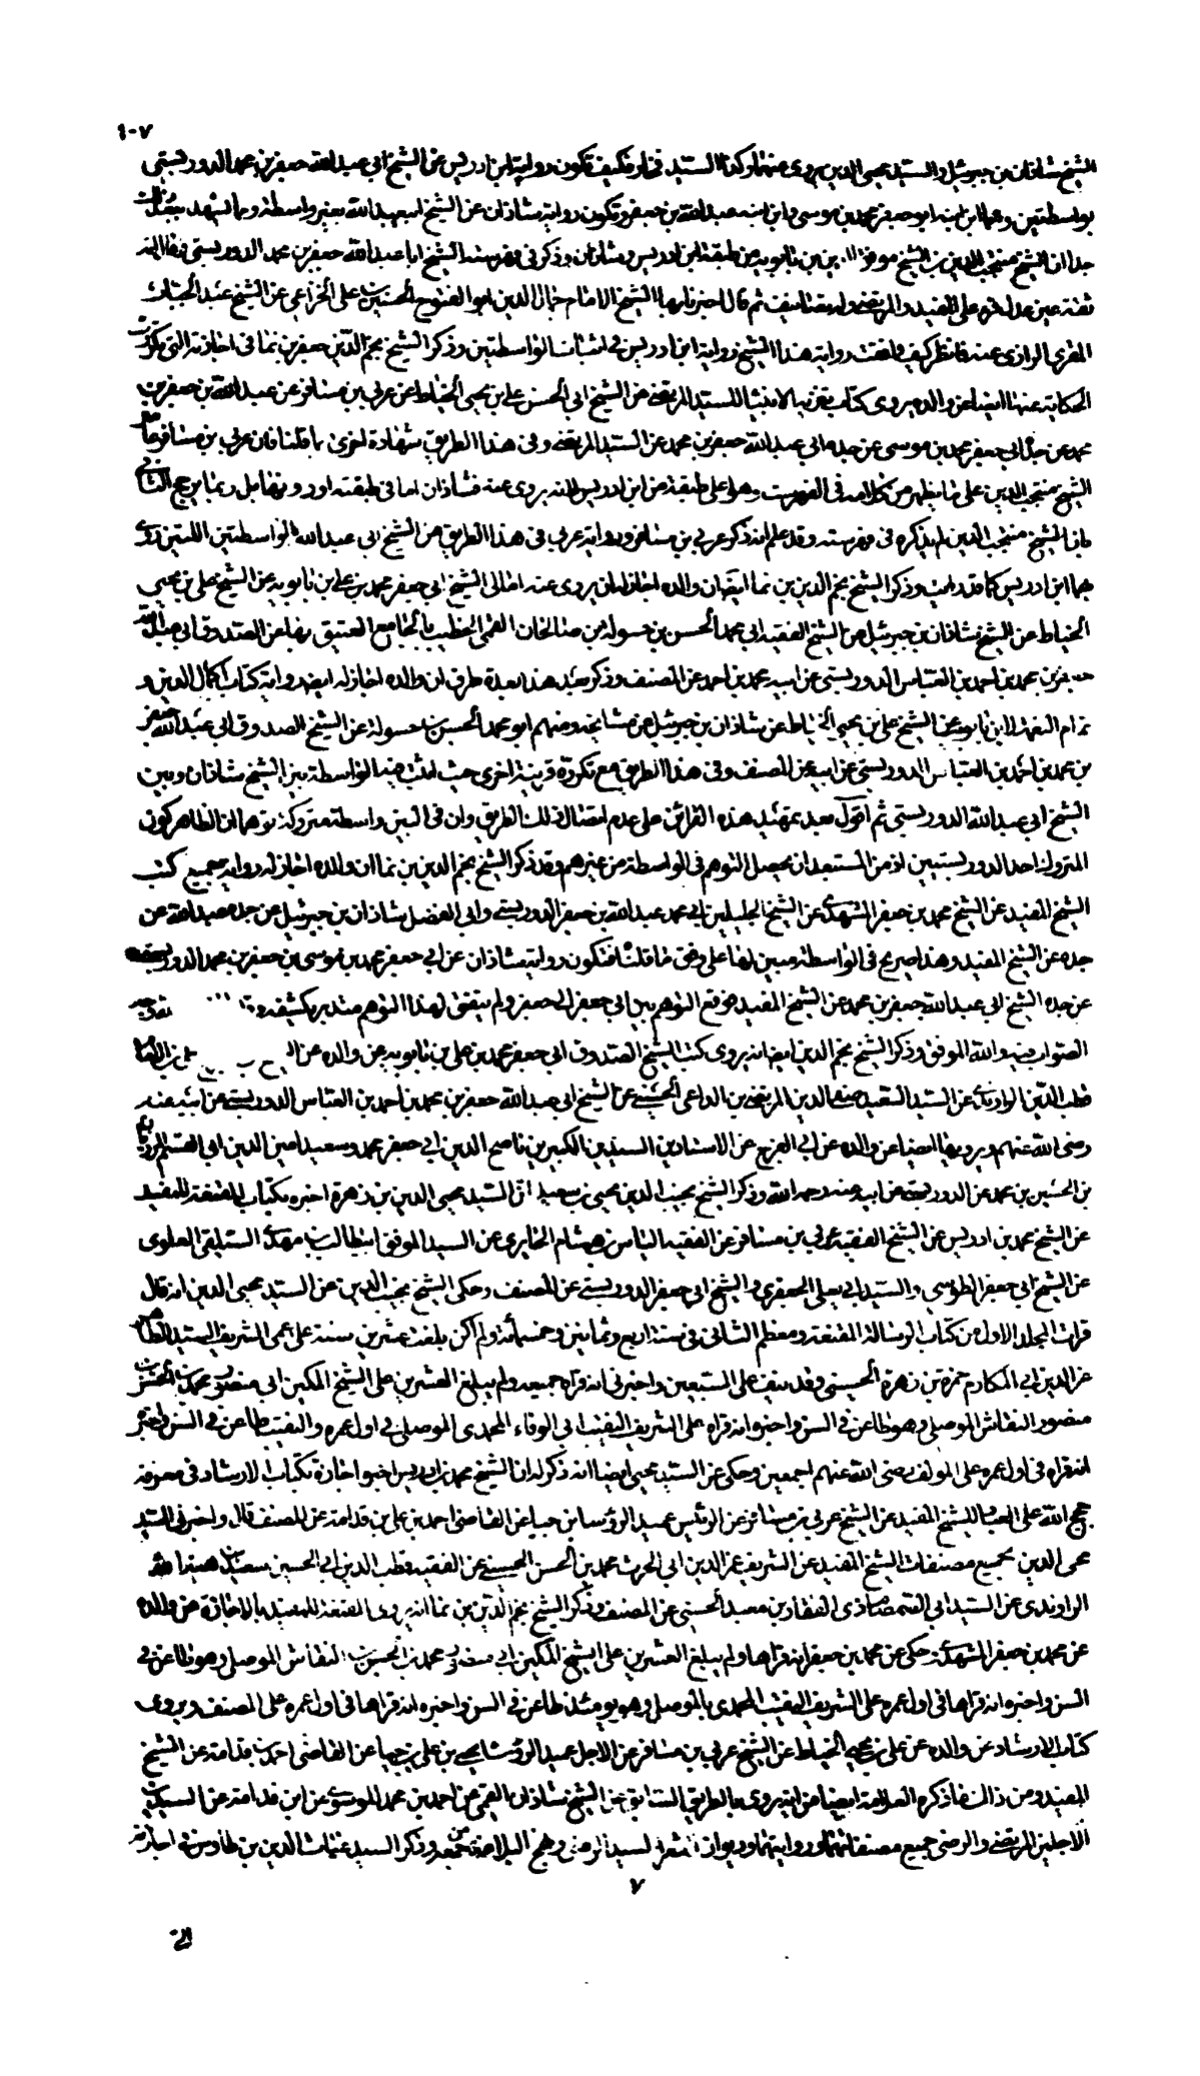 ١٠٧
الشيخ شاذان بن جبرئيل والسيد محيى الدين يروى عنهما وكذا السيد فخار فكيف تكون رواية ابن ادريس عن الشيخ ابي عبد الله جعفر بن محمد الدوريستي
بواسطتين وهما ابن ابنه ابو جعفر محمد بن موسى وابن ابنه عبد الله بن جعفر وتكون رواية شاذان عن الشيخ ابي عبد الله بغير واسطة ومما يشهد
جدا ان الشيخ منتجب الدين بن بابويه من طبقة ابن ادريس وشاذان وذكر في فهرسته الشيخ ابا عبد الله جعفر بن محمد الدوريستي وقال انه
ثقة عين عدل قرء على المفيد والمرتضى وله تصانيف ثم قال اخبرنا بها الشيخ الامام جمال الدين ابو الفتوح الحسين بن على الخزاعي عن الشيخ عبد الجبار
المقرى الرازى عنه فانظر كيف وافقت رواية هذا الشيخ رواية ابن ادريس في اثبات الواسطتين وذكر الشيخ نجم الدين جعفر بن نما في اجازته التى
الحكاية عنها ايضا عن والده يروى كتاب تنزيه الانبياء للسيد المرتضى عن الشيخ ابي الحسن على بن يحيى الخياط عن عربي بن مسافر عن عبد الله بن جعفر بن
محمد عن جده ابي جعفر محمد بن موسى عن جده ابي عبد الله جعفر بن محمد عن السيد المرتضى وفى هذا الطريق شهادة اخرى بما قلنا فان عربي بن مسافر
الشيخ منتجب الدين على ما يظهر من كلامه فى الفهرست وهو اعلى طبقة من ابن ادريس لانه يروى عنه فشاذان اما فى طبقته او
بان الشيخ منتجب الدين لم يذكره فى فهرسته وقد علم انه ذكر عربي بن مسافر ورواية عربي فى هذا الطريق عن الشيخ ابي عبد الله بالواسطتين اللتين روى
بهما ابن ادريس كما قد رايت وذكر الشيخ نجم الدين بن نما ايضا ان والده اجاز له ان يروى عنه امالى الشيخ ابي جعفر محمد بن على بن بابويه عن الشيخ على بن يحيى
الخياط عن الشيخ شاذان بن جبرئيل عن الشيخ الفقيه ابي محمد الحسن بن حسولة بن صالحان القمى الخطيب بالجامع العتيق بها عن الصدوق ابي عبد الله
جعفر بن محمد بن احمد بن العباس الدوريستي عن ابيه محمد بن احمد عن المصنف وذكر بعد هذا بعدة طرق ان والده اجاز له ايضا رواية كتاب اكمال الدين و
تمام النعمة لابن بابويه عن الشيخ على بن يحيى الخياط عن شاذان بن جبرئيل عن مشايخه ومنهم ابو محمد الحسن بن حسولة عن الشيخ الصدوق ابي عبد الله جعفر
بن محمد بن احمد بن العباس الدوريستي عن ابيه عن المصنف وفى هذا الطريق مع تكرره قرينة اخرى حيث اثبت فيه الواسطة بين الشيخ شاذان وبين
الشيخ ابي عبد الله الدوريستي ثم اقول بعد تمهيد هذه القرائن على عدم اتصال ذلك الطريق وان فى البين واسطة متروكة توهما ان الظاهر كون
المتروك احد الدوريستيين اذ من المستبعد ان يحصل التوهم فى الواسطة من غيرهم وقد ذكر الشيخ نجم الدين بن نما ان والده اجاز له رواية جميع كتب
الشيخ المفيد عن الشيخ محمد بن جعفر المشهدى عن الشيخين الجليلين ابي محمد عبد الله بن جعفر الدوريستي وابي الفضل شاذان بن جبرئيل عن جده عبد الله عن
جده عن الشيخ المفيد وهذا صريح فى الواسطة مبين لها على وفق ما قلناه فتكون رواية شاذان عن ابي جعفر محمد بن موسى بن جعفر بن محمد الدوريستي
عن جده الشيخ ابي عبد الله جعفر بن محمد عن الشيخ المفيد فوقع التوهم بين ابي جعفر الى جعفر ولم يتفق لهذا التوهم متدبر يكشفه
الصواب فيه والله الموفق وذكر الشيخ نجم الدين ايضا انه يروى كتب الشيخ الصدوق ابي جعفر محمد بن على بن بابويه عن والده عن
قطب الدين الراوندى عن السيد السعيد صفى الدين المرتضى بن الداعى الحسينى عن الشيخ ابي عبد الله جعفر بن محمد بن احمد بن العباس الدوريستي عن ابيه عنه
رضى الله عنهم ويرويها ايضا عن والده عن ابي الفرج عن الاستادين السيدين الكبيرين ناصح الدين ابي جعفر محمد وسعيد امين الدين ابي القسم المرزبان
بن الحسين بن محمد عن الدوريستي عن ابيه عنه رحمه الله وذكر الشيخ نجيب الدين يحيى بن سعيد ان السيد محيى الدين بن زهرة اخبره بكتاب المقنعة للمفيد
عن الشيخ محمد بن ادريس عن الشيخ الفقيه عربي بن مسافر عن الفقيه الياس بن هشام الحايرى عن السيد الموفق ابي طالب بن مهدى السليقى العلوى
عن الشيخ ابي جعفر الطوسي والسيد ابي يعلى الجعفري والشيخ ابي جعفر الدوريستي عن المصنف وحكى الشيخ نجيب الدين عن السيد محيى الدين انه قال
قرات المجلد الاول من كتاب الرسالة المقنعة ومعظم الثانى فى سنة اربع وثمانين وخمسمائة ولم اكن بلغت عشرين سنة على عمى الشريف السيد الطاهر
عز الدين ابي المكارم حمزة بن زهرة الحسينى وقد نيف على السبعين واخبرنى انه قراه جميعه ولم يبلغ العشرين على الشيخ المكين ابي منصور محمد بن الحسن بن
منصور النقاش الموصلى وهو طاعن فى السن واخبره انه قراه على الشريف النقيب ابي الوفاء المحمدى الموصلى فى اول عمره والنقيب طاعن فى السن واخبر
انه قراه فى اول عمره على المولف رضى الله عنهم اجمعين وحكى عن السيد محيى ايضا انه ذكر له ان الشيخ محمد بن ادريس اخبره اجازة بكتاب الارشاد فى معرفة
حجج الله على العباد للشيخ المفيد عن الشيخ عربي بن مسافر عن الرئيس عميد الرؤسا بن حيا عن القاضى احمد بن على بن قدامة عن المصنف قال واخبرنى السيد
محى الدين بجميع مصنفات الشيخ المفيد عن الشريف عز الدين ابي الحرث محمد بن الحسن الحسينى عن الفقيه قطب الدين ابي الحسين سعيد بن هبة الله
الراوندى عن السيد ابي الصمصام ذى الفقار بن معبد الحسنى عن المصنف وذكر الشيخ نجم الدين بن نما انه يروى المقنعة للمفيد بالاجازة عن والده
عن محمد بن جعفر المشهدى وحكى عن محمد بن جعفر انه قراها ولم يبلغ العشرين على الشيخ المكين ابي منصور محمد بن الحسن بن النقاش الموصلى وهو طاعن فى
السن واخبره انه قراها فى اول عمره على الشريف النقيب المحمدى بالموصل وهو يومئذ طاعن فى السن واخبره انه قراها فى اول عمره على المصنف ويروى
كتاب الارشاد عن والده عن على بن يحيى الخياط عن الشيخ عربي بن مسافر عن الاجل عميد الرؤسا يحيى بن على بن حيا عن القاضى احمد بن قدامة عن الشيخ
المفيد ومن ذلك ما ذكره العلامة ايضا من انه يروى بالطريق السابق عن الشيخ شاذان القمى عن احمد بن محمد الموسوى عن ابن قدامة عن السيدين
الاجلين المرتضى والرضى جميع مصنفاتهما ورواياتهما وديوان شعر السيد الرضى ونهج البلاغة من جمعه وذكر السيد غياث الدين بن طاوس فى اجازته
٧